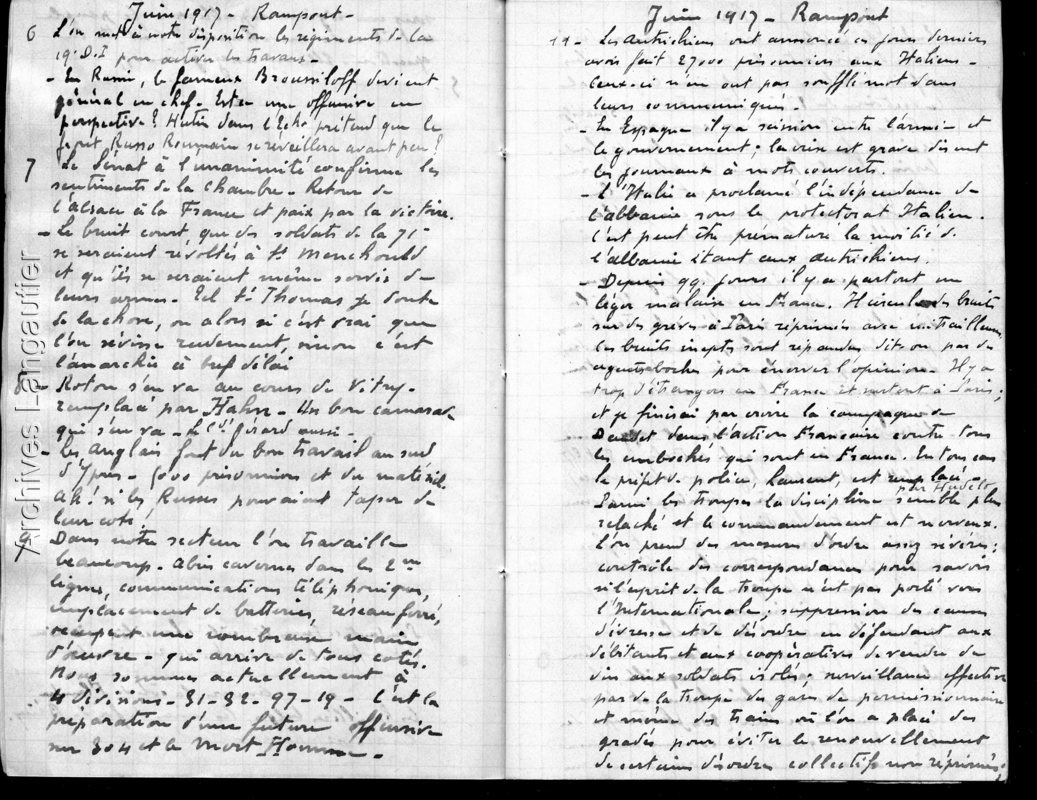 Juin 1917 - Rampont -
6 L'on met à notre disposition les régiments de la
19e D.I pour activer les travaux -
- En Russie, le fameux Broussiloff devient
général en chef. Est ce une offensive en
perspective? Hutin dans l'Echo prétend que le
front Russo Roumain se reveillera avant peu?
7 Le Sénat à l'unanimité confirme les
sentiments de la Chambre - Retour de
l'alsace à la France et paix par la victoire.
- Le bruit court que des soldats de la 71e
se seraient révoltés à Ste Menehould
et qu'ils se seraient même servis de
leurs armes - Tel St Thomas je doute
de la chose, ou alors si c'est vrai que
l'on sévisse rudement, sinon c'est
l'anarchie à bref délai
8 - Roton s'en va au cours de Vitry -
remplacé par Hahn - Un bon camarade
qui s'en va - le Ct Gérard aussi -
- Les anglais font du bon travail au sud
d'Ypres - 5000 prisonniers et du matériel.
Ah! si les Russes pouvaient taper de
leur coté!
9 Dans notre secteur l'on travaille
beaucoup - abris cavernes dans les 2mes
lignes, communications téléphoniques,
emplacement de batteries, réseau ferré,
occupent une nombreuse main
d'œuvre - qui arrive de tous cotés.
Nous sommes actuellement à
4 divisions - 31 - 32 - 97 - 19 - C'est la
préparation d'une future offensive
sur 304 et le Mort Homme -
Juin 1917 - Rampont
11 - Les autrichiens ont annoncé ces jours derniers
avoir fait 27000 prisonniers aux Italiens -
Ceux-ci n'en ont pas soufflé mot dans
leurs communiqués -
- En Espagne il y a scission entre l'armée et
le gouvernement; la crise est grave disent
les journaux à mots couverts.
- L'Italie a proclamé l'indépendance de
l'albanie sous le protectorat Italien.
C'est peut être prématuré la moitié de
l'albanie étant aux autrichiens.
- Depuis qq. jours il y a partout un
léger malaise en France. Il circule des bruits
sur des grèves à Paris réprimées avec mitrailleuses
Ces bruits ineptes sont répandus dit-on par des
agents boches pour énerver l'opinion - Il y a
trop d'étrangers en France et surtout à Paris;
et je finirai par croire la campagne de
Daudet dans l'action Française contre tous
les emboches qui sont en France. En tous cas
le préfet de police, Laurent, est remplacé -
par Hudelo
Parmi les troupes la discipline semble plus
relaché et le commandement est nerveux.
L'on prend des mesures d'ordre assez sévères;
contrôle des correspondances pour savoir
si l'esprit de la troupe n'est pas porté vers
l'Internationale; suppression des causes
d'ivresse et de désordre en défendant aux
débitants et aux coopératives de vendre du
vin aux soldats isolés; surveillance effective
par de la troupe des gares de permissionnaires
et même des trains où l'on a placé des
gradés pour éviter le renouvellement
de certains désordres collectifs non réprimés;
Archives Langautier